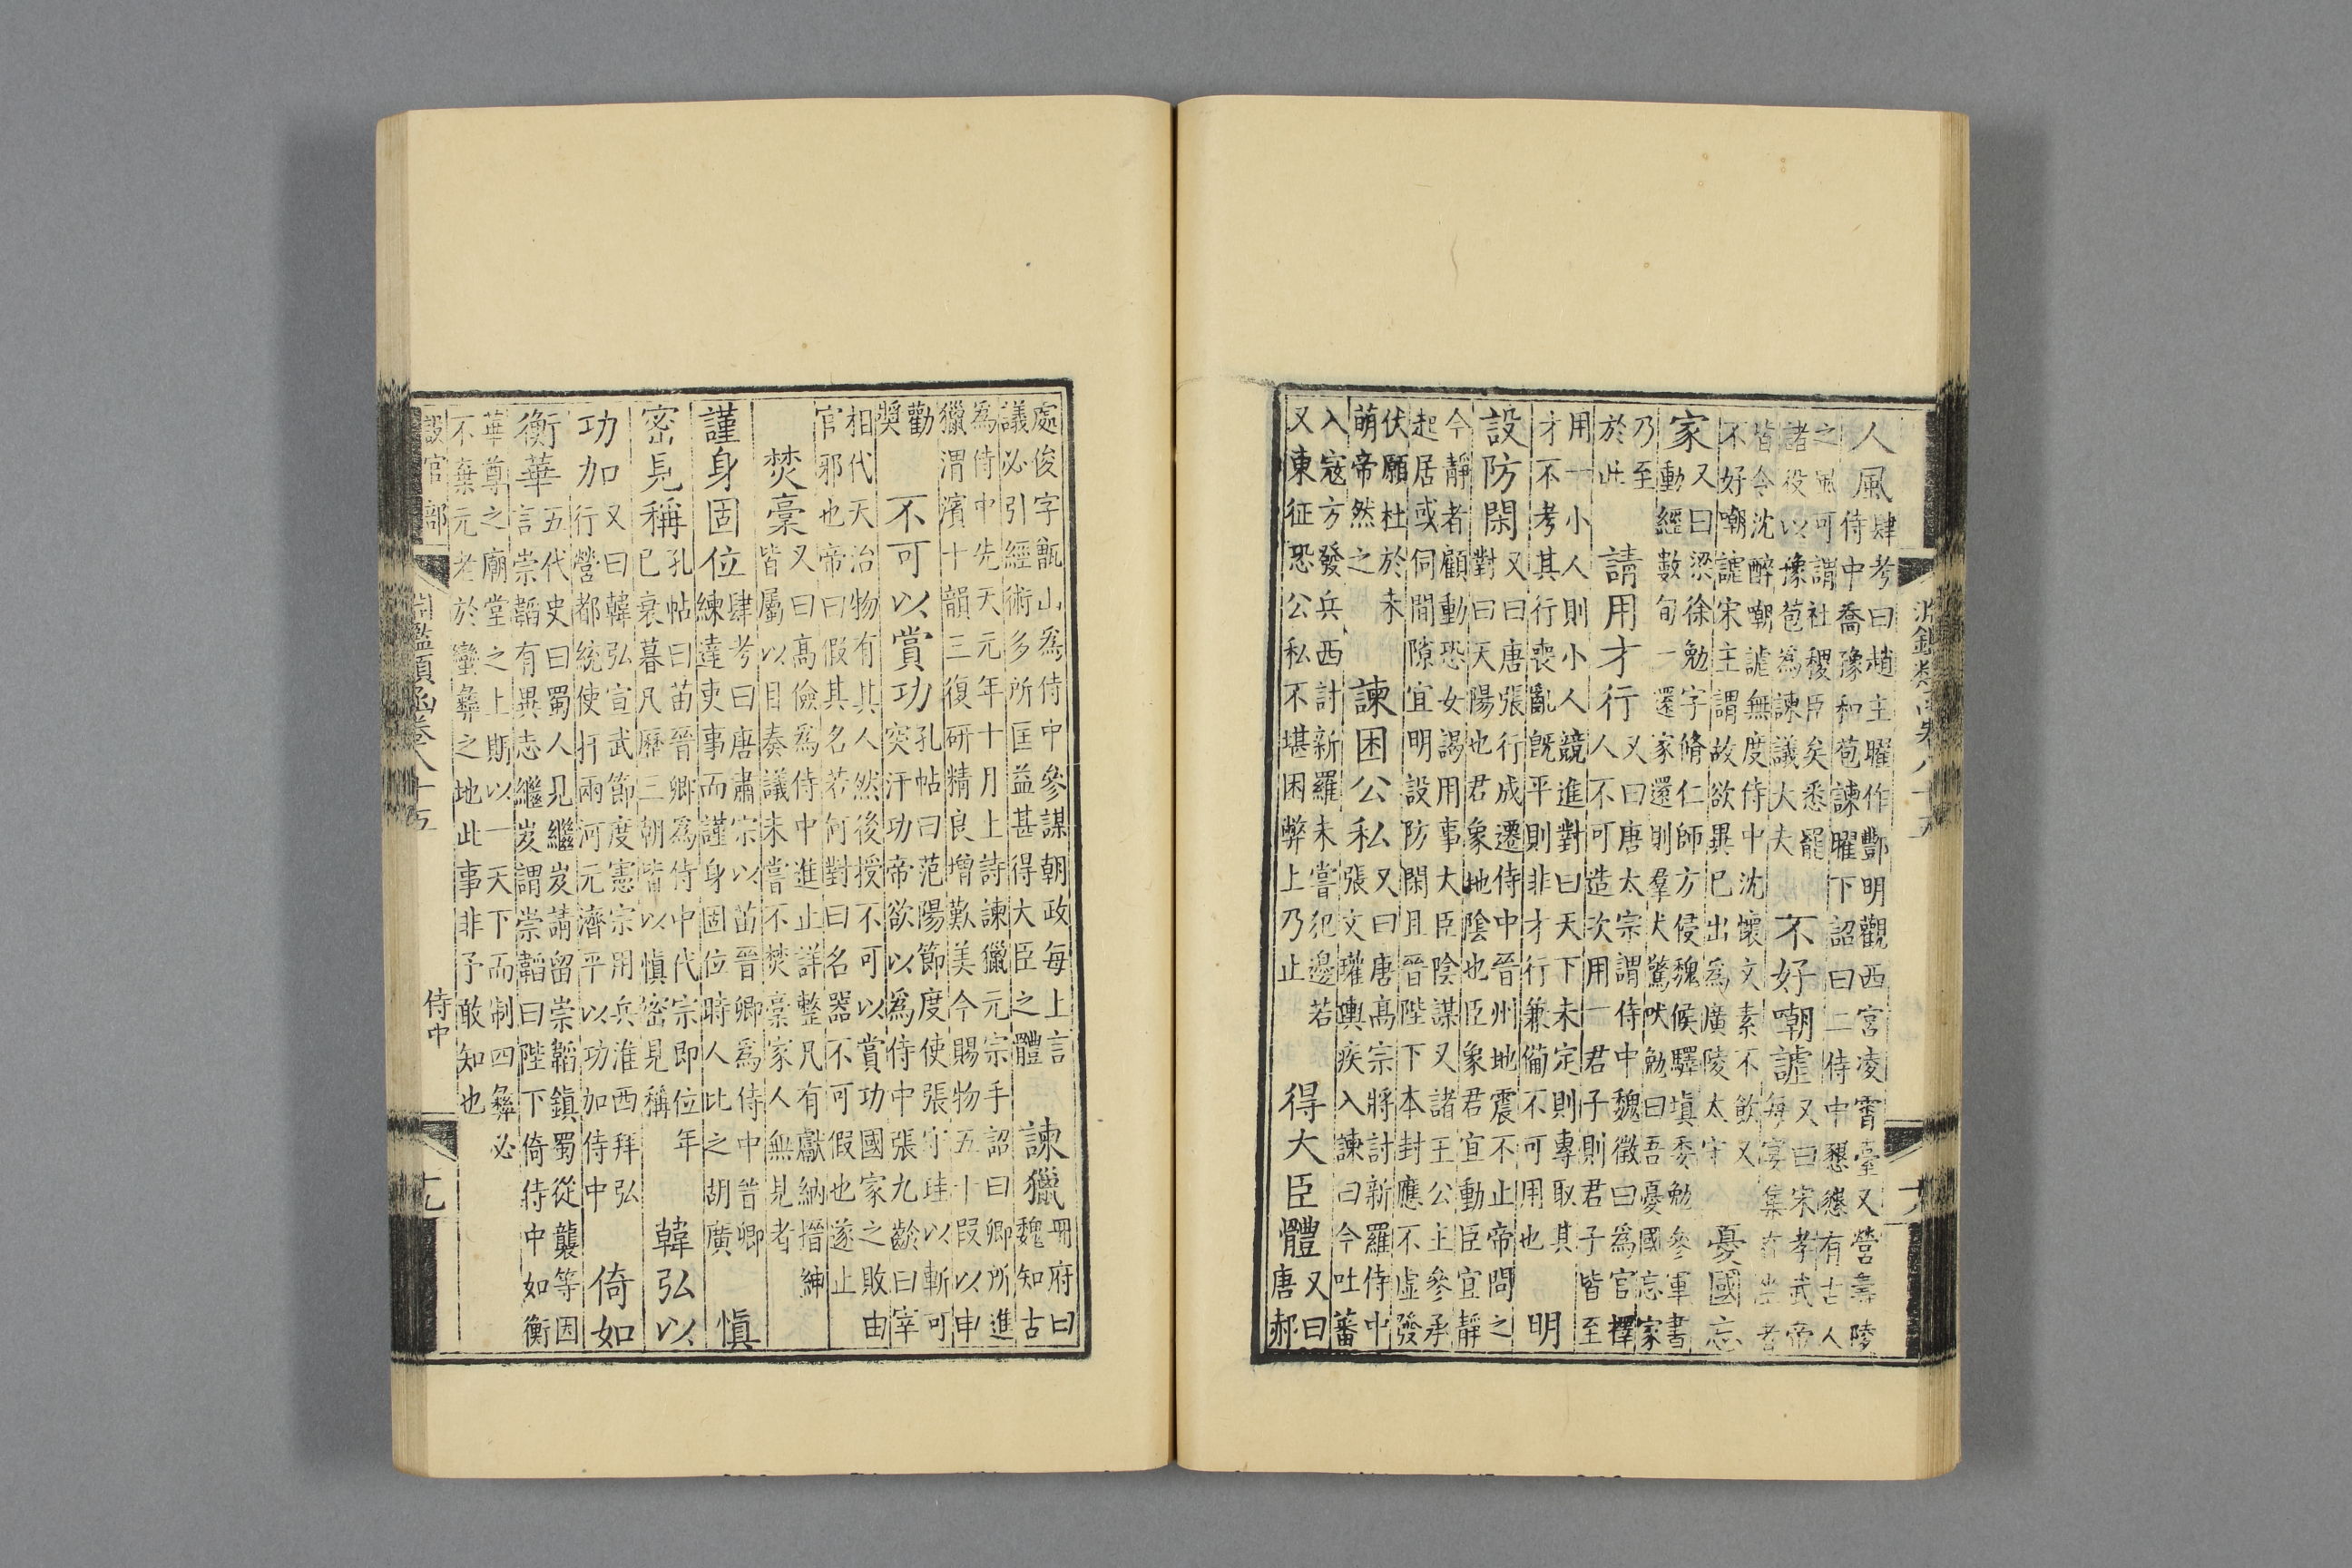 人風肆考曰趙主曜作酆明觀西宮凌霄臺又營壽陵
侍中喬豫和苞諫曜下詔曰二侍中懇懇有古人
之風可謂社稷臣矣悉罷
諸役以豫苞為諫議大夫
不好嘲謔又曰宋孝武帝
每宴集在坐者
皆令沈醉嘲謔無度侍中沈懷文素不飲又
不好嘲謔宋主謂故欲異己出為廣陵太守
憂國忘
家又曰梁徐勉字脩仁師方侵魏候驛填委勉參軍書
動經數旬一還家還則羣犬驚吠勉曰吾憂國忘家
乃至
於此
請用才行又曰唐太宗謂侍中魏徵曰為官擇
人不可造次用一君子則君子皆至
用一小人則小人競進對曰天下未定則專取其
才不考其行喪亂既平則非才行兼備不可用也
明
設防閑又曰唐張行成遷侍中晉州地震不止帝問之
對曰天陽也君象地陰也臣象君宜動臣宜靜
今靜者顧動恐女謁用事大臣陰謀又諸王公主參承
起居或伺間隙宜明設防閑且晉陛下本封應不虛發
伏願杜於未
萌帝然之
諫困公私又曰唐高宗將討新羅侍中
張文瓘輿疾入諫曰今吐蕃
入寇方發兵西討新羅未嘗犯邊若
又東征恐公私不堪困弊上乃止
得大臣體又曰
唐郝
處俊字甑山為侍中參謀朝政每上言
議必引經術多所匡益甚得大臣之體
諫獵冊府曰
魏知古
為侍中先天元年十月上詩諫獵元宗手詔曰卿所進
獵渭濱十韻三復研精良增歎美今賜物五十叚以申
勸
奬
不可以賞功孔帖曰范陽節度使張守珪以斬可
突汗功帝欲以為侍中張九齡曰宰
相代天治物有其人然後授不可以賞功國家之敗由
官邪也帝曰假其名若何對曰名器不可假也遂止
焚稾又曰高儉為侍中進止詳整凡有獻納搢紳
皆屬以目奏議未嘗不焚稾家人無見者
慎
謹身固位肆考曰唐肅宗以苗晉卿為侍中晉卿
練達吏事而謹身固位時人比之胡廣
密見稱孔帖曰苗晉卿為侍中代宗即位年
已衰暮凡歷三朝皆以慎密見稱
韓弘以
功加又曰韓弘宣武節度憲宗用兵淮西拜弘
行營都統使扞兩河元濟平以功加侍中
倚如
衡華五代史曰蜀人見繼岌請留崇韜鎮蜀從襲等因
言崇韜有異志繼岌謂崇韜曰陛下倚侍中如衡
華尊之廟堂之上期以一天下而制四彝必
不棄元老於蠻彝之地此事非予敢知也
設官部
侍中